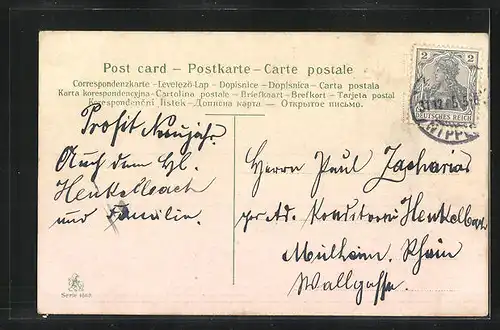 Post card – Postkarte – Carte postale
Correspondenzkarte – Levelező-Lap – Dopisnice – Dopisnica – Carta postala
Karta korespondencyjna – Cartolina postale – Briefkaart – Brefkort – Tarjeta postal
Korespondenční lístek – Дописна карта – Открытое письмо.
2 2
DEUTSCHES REICH
31.12.05.5-6
Prosit Neujahr.
Auch dem Hl.
Henkelbach
und Familie.
Herrn Paul Zacharias
per Ad. Konditorei Henkelbach
Mülheim. Rhein
Wallgasse.
Serie